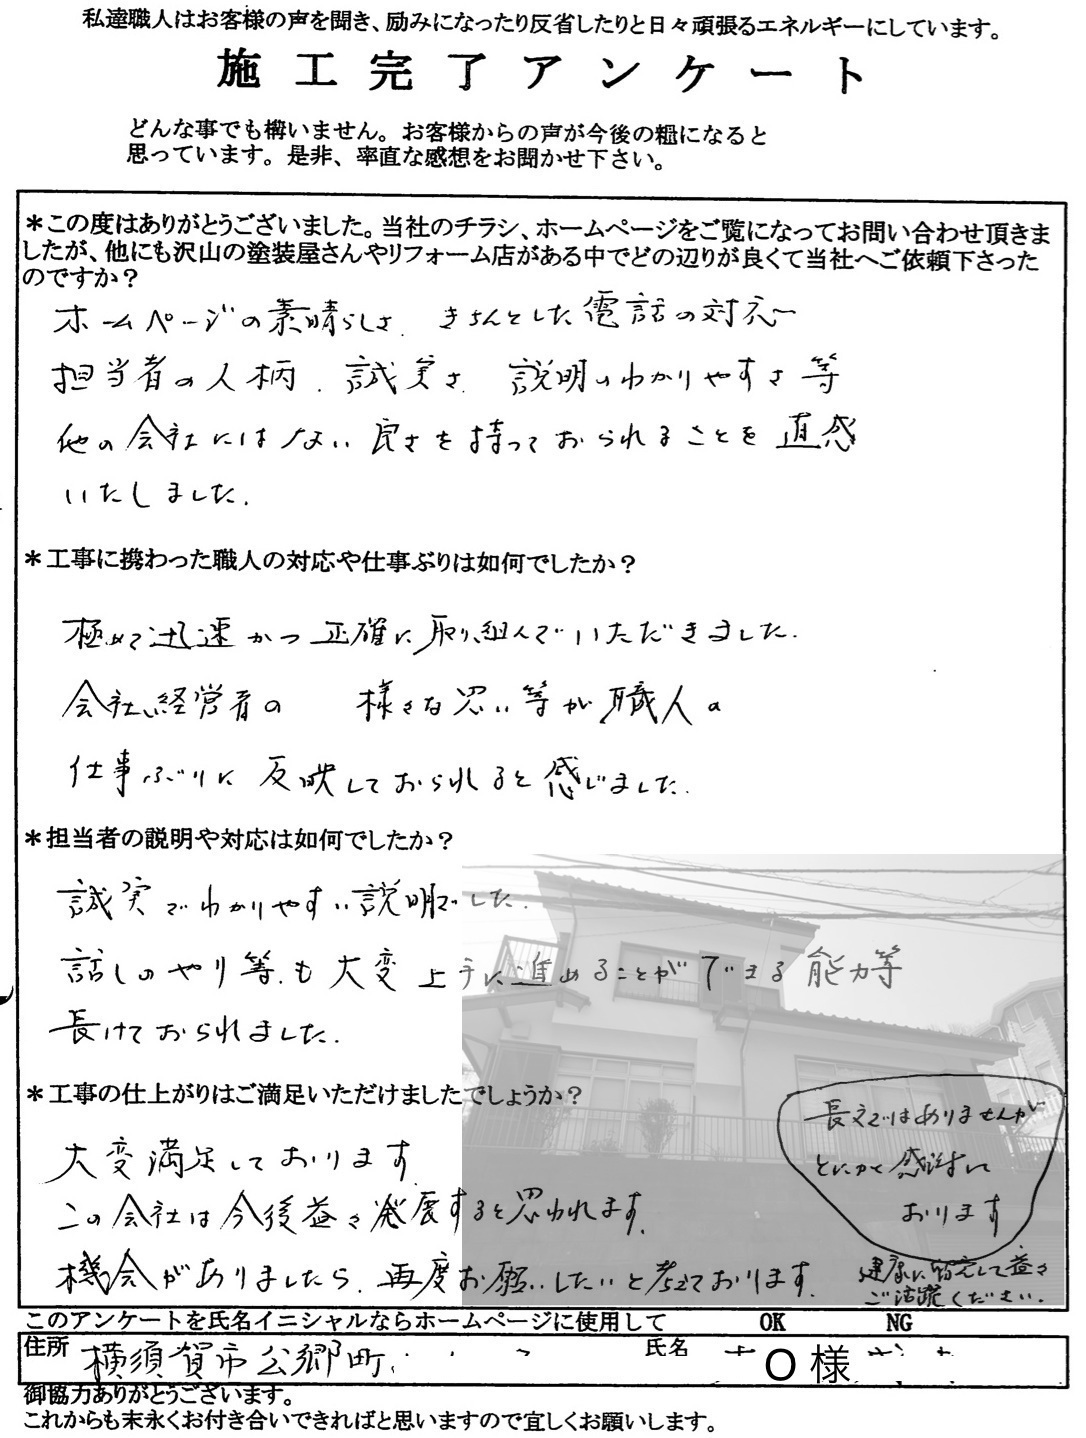 私達職人はお客様の声を聞き、励みになったり反省したりと日々頑張るエネルギーにしています。
施工完了アンケート
どんな事でも構いません。お客様からの声が今後の糧になると
思っています。是非、率直な感想をお聞かせ下さい。
＊この度はありがとうございました。当社のチラシ、ホームページをご覧になってお問い合わせ頂きま
したが、他にも沢山の塗装屋さんやリフォーム店がある中でどの辺りが良くて当社へご依頼下さった
のですか？
ホームページの素晴らしさ、きちんとした電話の対応
担当者の人柄、誠実さ、説明のわかりやすさ等
他の会社にはない良さを持っておられることを直感
いたしました。
＊工事に携わった職人の対応や仕事ぶりは如何でしたか？
極めて迅速かつ正確に取り組んでいただきました。
会社経営者の 様々な思い等が職人の
仕事ぶりに反映しておられると感じました。
＊担当者の説明や対応は如何でしたか？
誠実でわかりやすい説明でした。
話しのやり等も大変上手に進めることができる能力等
長けておられました。
＊工事の仕上がりはご満足いただけましたでしょうか？
大変満足しております。
この会社は今後益々発展すると思われます。
機会がありましたら、再度お願いしたいと考えております。
長文ではありませんが
とにかく感謝して
おります
健康に留意して益々
ご活躍ください。
このアンケートを氏名イニシャルならホームページに使用して OK NG
住所 横須賀市公郷町 氏名 O様
御協力ありがとうございます。
これからも末永くお付き合いできればと思いますので宜しくお願いします。